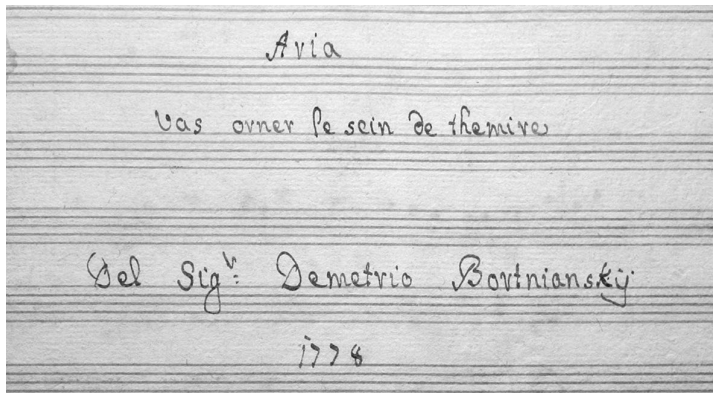 Aria
Vas orner le sein de themire
Del Sigr: Demetrio Bortnianskij
1778